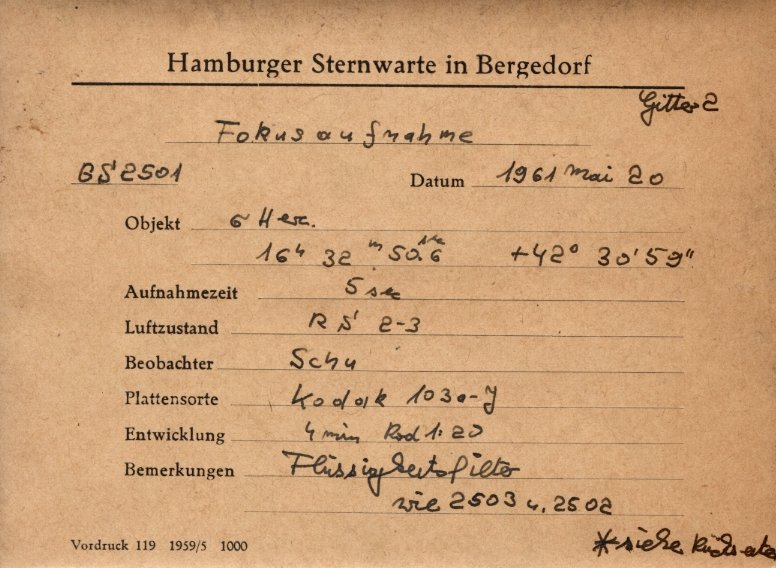 Hamburger Sternwarte in Bergedorf
Gitter 2
Fokusaufnahme
BS 2501 Datum 1961 Mai 20
Objekt σ Her.
16h 32m 50.6sec +42° 30' 59"
Aufnahmezeit 5 sec
Luftzustand R S 2-3
Beobachter Schu
Plattensorte Kodak 103a-J
Entwicklung 4 min Rod 1:20
Bemerkungen Flüssigkeitsfilter
wie 2503 u. 2502
Vordruck 119 1959/5 1000 * siehe Rückseite